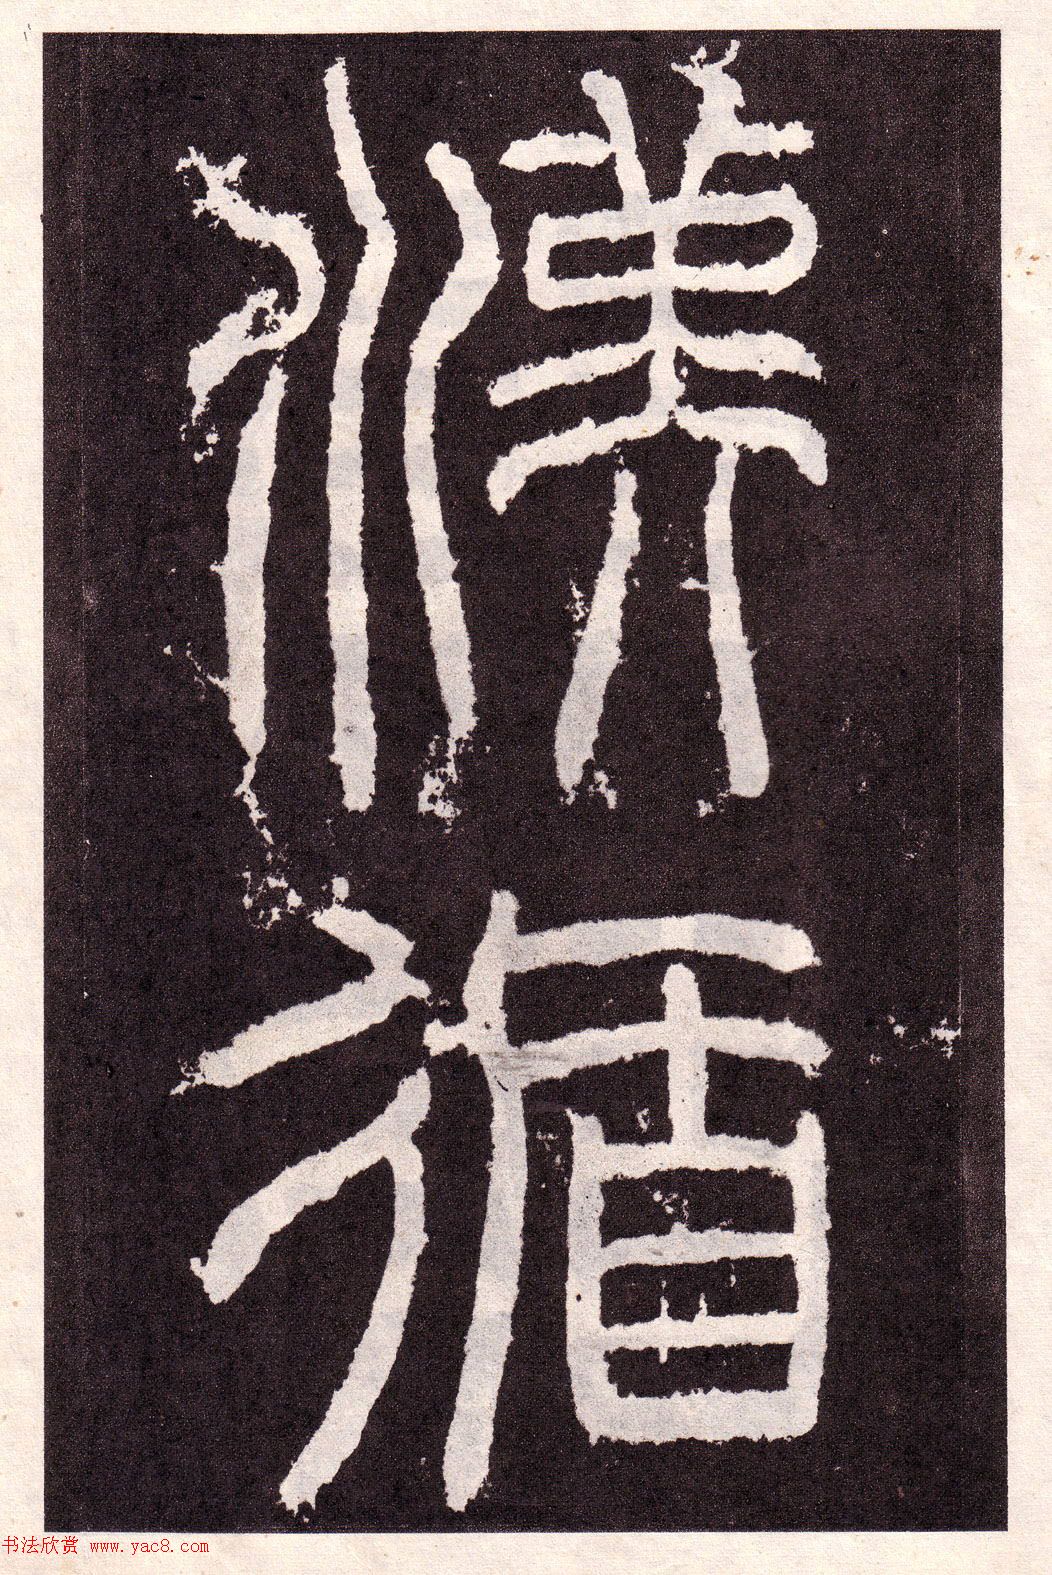 漢
循
书法欣赏 www.yac8.com